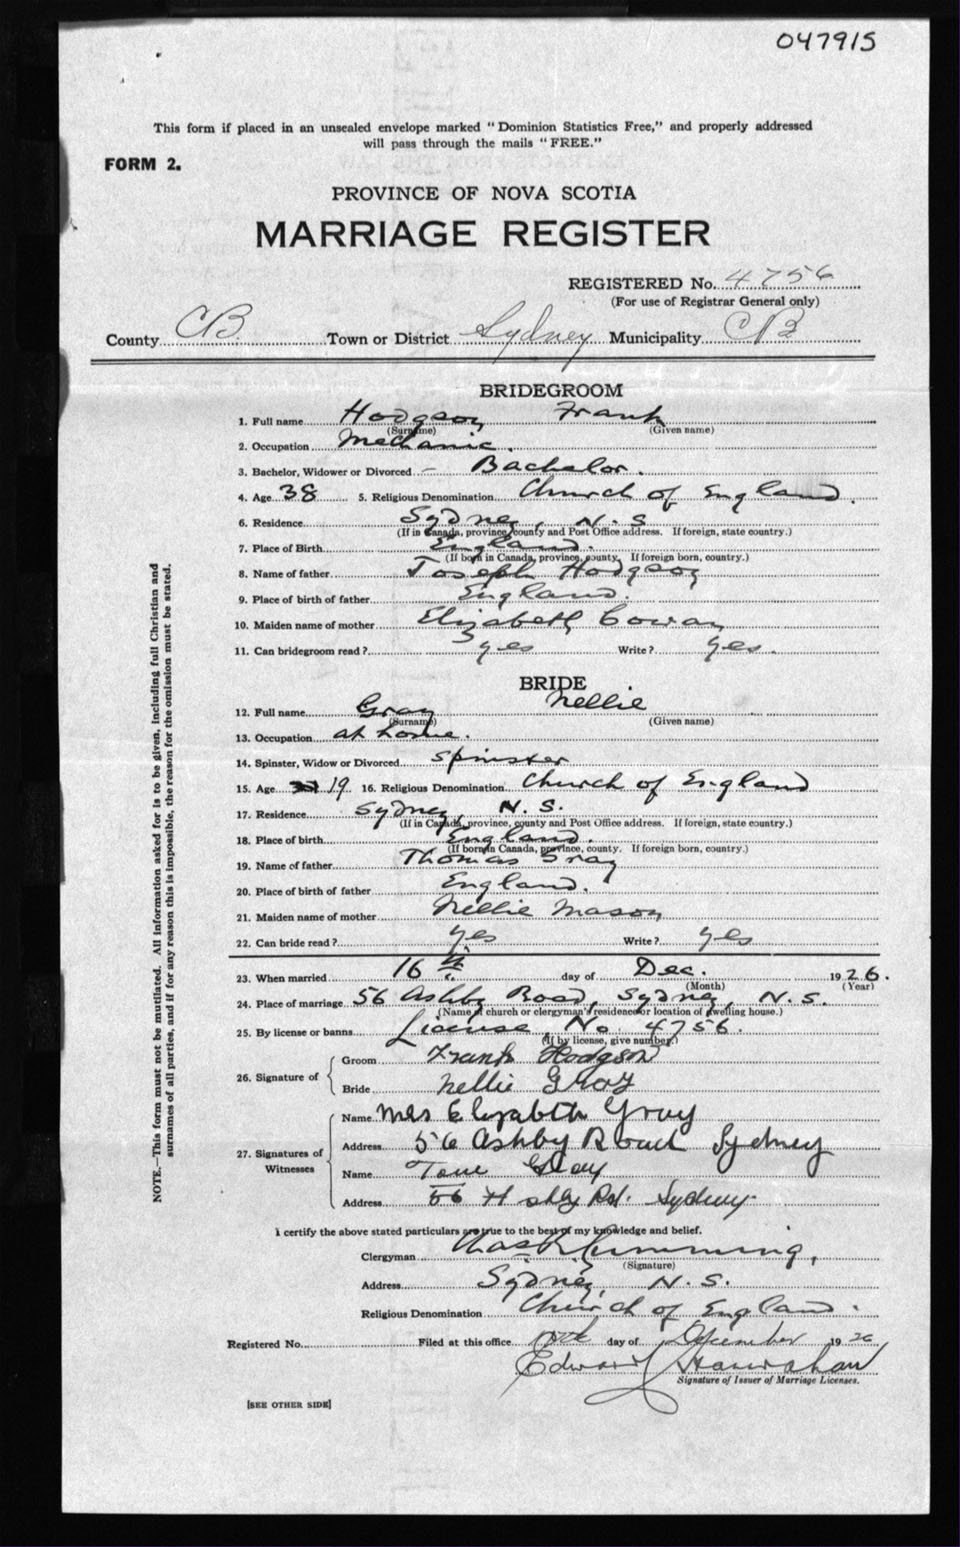 047915
This form if placed in an unsealed envelope marked "Dominion Statistics Free," and properly addressed
will pass through the mails "FREE."
FORM 2.
PROVINCE OF NOVA SCOTIA
MARRIAGE REGISTER
REGISTERED No. 4756
(For use of Registrar General only)
County CB. Town or District Sydney Municipality CB
BRIDEGROOM
1. Full name Hodgson Frank
(Surname) (Given name)
2. Occupation Mechanic.
3. Bachelor, Widower or Divorced – Bachelor.
4. Age 38 5. Religious Denomination Church of England.
6. Residence Sydney, N.S
(If in Canada, province, county and Post Office address. If foreign, state country.)
7. Place of Birth England.
(If born in Canada, province, county. If foreign born, country.)
8. Name of father Joseph Hodgson
9. Place of birth of father England.
10. Maiden name of mother Elizabeth Cowan
11. Can bridegroom read? yes Write? yes.
BRIDE
12. Full name Gray Nellie
(Surname) (Given name)
13. Occupation at home.
14. Spinster, Widow or Divorced Spinster
15. Age 19 16. Religious Denomination Church of England
17. Residence Sydney, N.S.
(If in Canada, province, county and Post Office address. If foreign, state country.)
18. Place of birth England.
(If born in Canada, province, county. If foreign born, country.)
19. Name of father Thomas Gray
20. Place of birth of father England.
21. Maiden name of mother Nellie Mason
22. Can bride read? yes Write? yes
23. When married 16th day of Dec. 1926.
(Month) (Year)
24. Place of marriage 56 Ashby Road, Sydney, N.S.
(Name of church or clergyman's residence or location of dwelling house.)
25. By license or banns License, No. 4756.
(If by license, give number.)
26. Signature of
Groom Frank Hodgson
Bride Nellie Gray
27. Signatures of Witnesses
Name Mrs Elizabeth Gray
Address 56 Ashby Road Sydney
Name Tom Gray
Address 56 Ashby Rd. Sydney.
I certify the above stated particulars are true to the best of my knowledge and belief.
Clergyman Cumming,
(Signature)
Address Sydney, N.S.
Religious Denomination Church of England.
Registered No. Filed at this office day of December 1926
Edward
Signature of Issuer of Marriage Licenses.
[SEE OTHER SIDE]
NOTE.—This form must not be mutilated. All information asked for is to be given, including full Christian and
surnames of all parties, and if for any reason this is impossible, the reason for the omission must be stated.